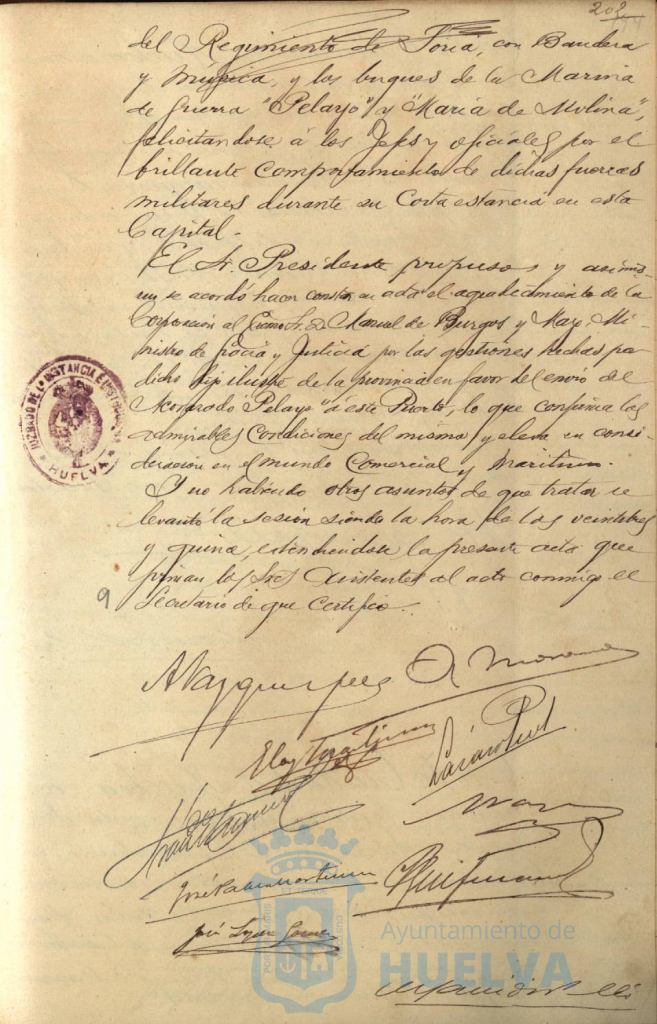 202
del Regimiento de Soria, con Bandera
y Música, y los buques de la Marina
de Guerra "Pelayo" y "María de Molina",
felicitandose á los Jefes y oficiales por el
brillante comportamiento de dichas fuerzas
militares durante su corta estancia en esta
Capital.
El Sr. Presidente propuso y asimis-
mo se acordó hacer constar en acta el agradecimiento de la
Corporación al Excmo Sr. D. Manuel de Burgos y Mazo, Mi-
nistro de Gracia y Justicia por las gestiones hechas por
dicho hijo ilustre de la provincia en favor del envio del
Acorazado "Pelayo" á este Puerto, lo que confirma las
admirables condiciones del mismo y eleva su consi-
deración en el mundo Comercial y Maritimo.
Y no habiendo otros asuntos de que tratar se
levantó la sesión siendo la hora de las veintitres
y quince, extendiendose la presente acta que
firman los Sres Asistentes al acto conmigo el
Secretario de que certifico.
9
JUZGADO DE 1ª INSTANCIA E INSTRUCCIÓN
HUELVA
Ayuntamiento de
HUELVA